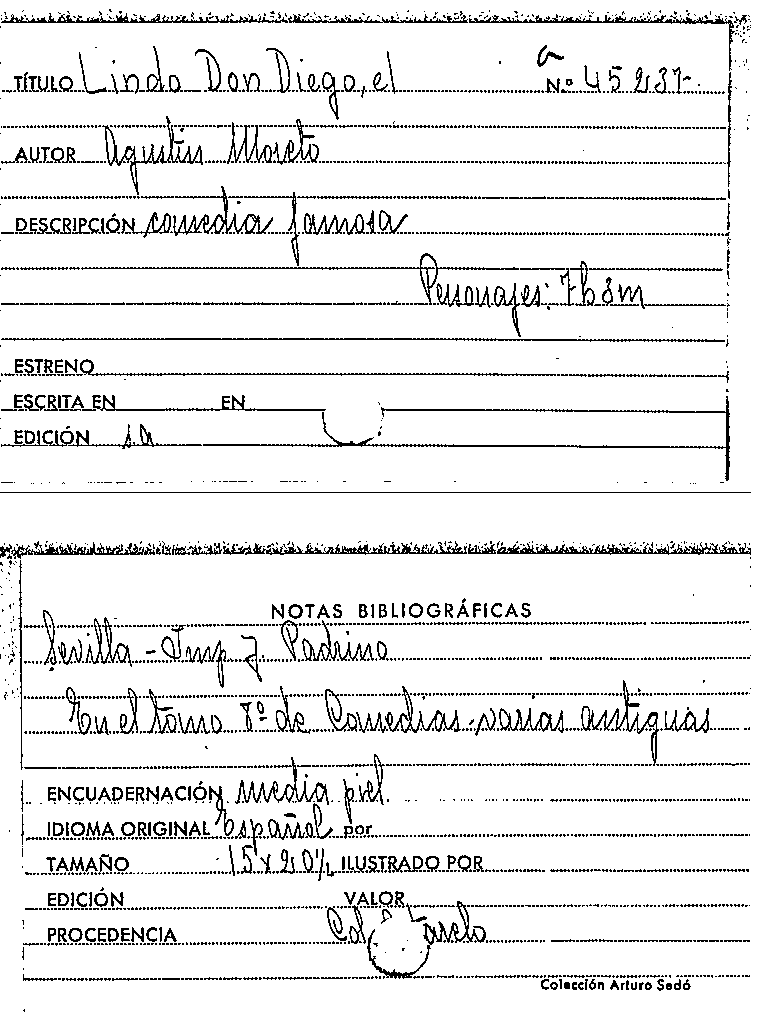 a
TÍTULO Lindo Don Diego, el N.º 45237-
AUTOR Agustín Moreto
DESCRIPCIÓN comedia famosa
Personajes: 7h 3m
ESTRENO
ESCRITA EN EN
EDICIÓN s.a
NOTAS BIBLIOGRÁFICAS
Sevilla - Imp J. Padrino
En el tomo 8º de Comedias varias antiguas
ENCUADERNACIÓN media piel.
IDIOMA ORIGINAL Español por
TAMAÑO 15 x 20½ ILUSTRADO POR
EDICIÓN VALOR
PROCEDENCIA Col
Colección Arturo Sedó